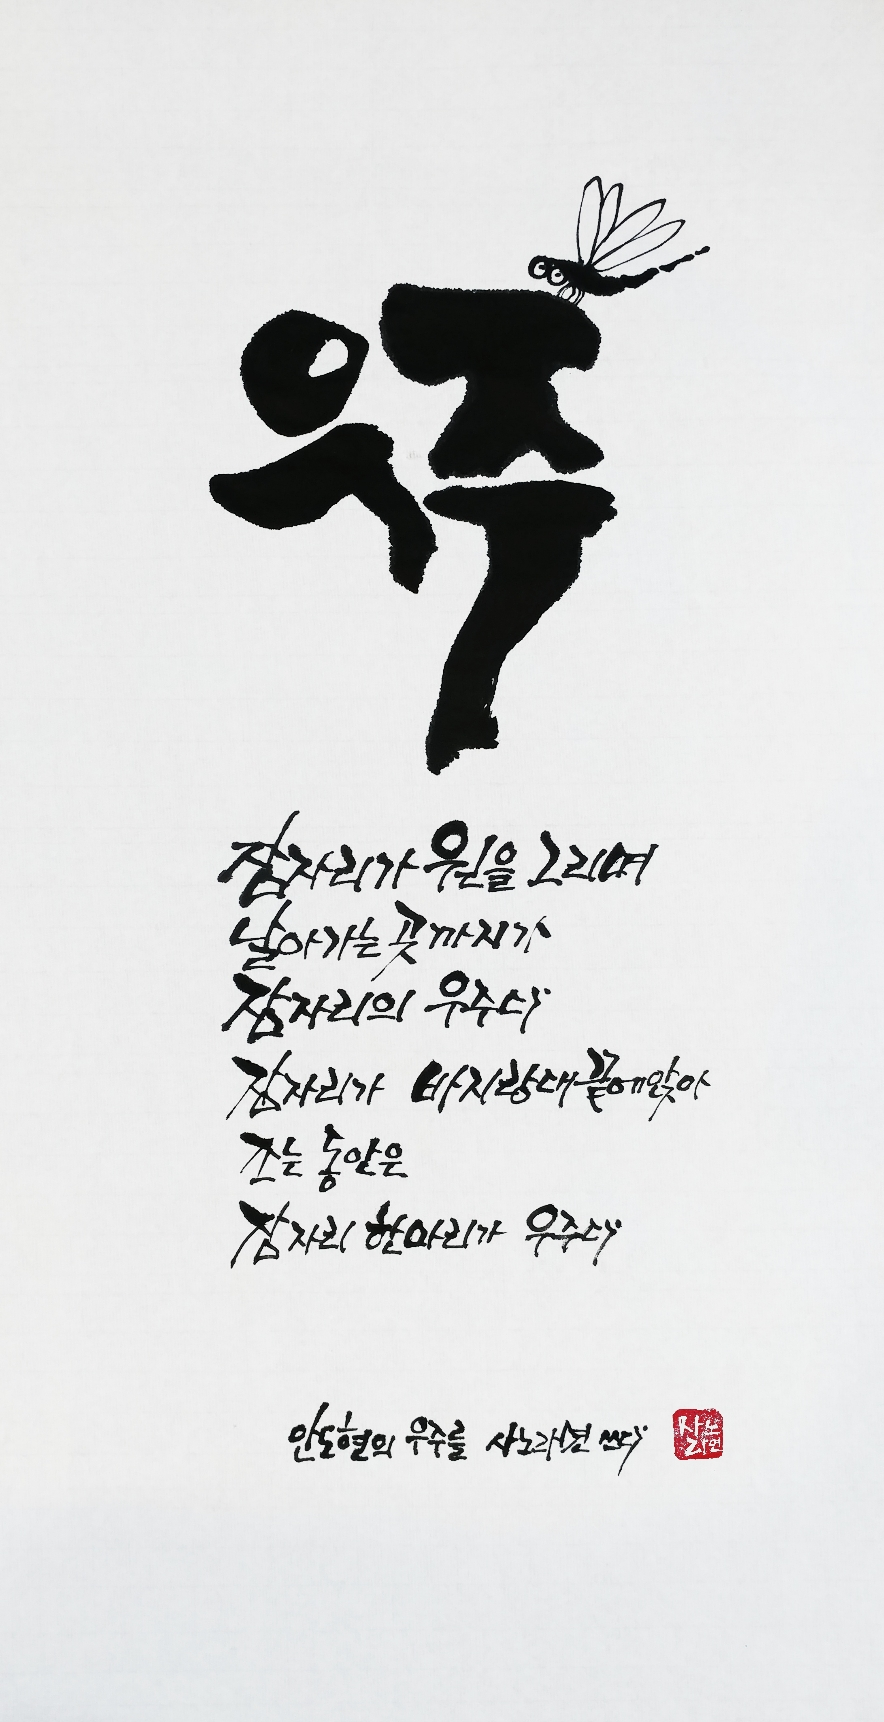 우주
잠자리가 원을 그리며
날아가는 곳까지가
잠자리의 우주다
잠자리가 바지랑대 끝에 앉아
조는 동안은
잠자리 한 마리가 우주다
안도현의 우주를 사노라면 쓰다
사노라면